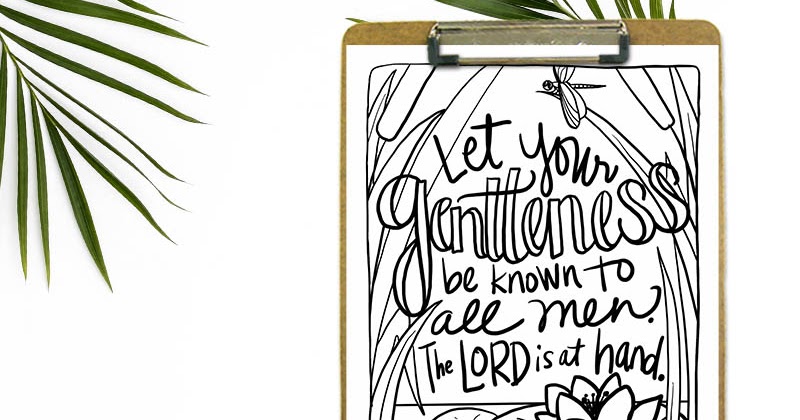 Let your
gentleness
be known to
all men.
The LORD is at hand.